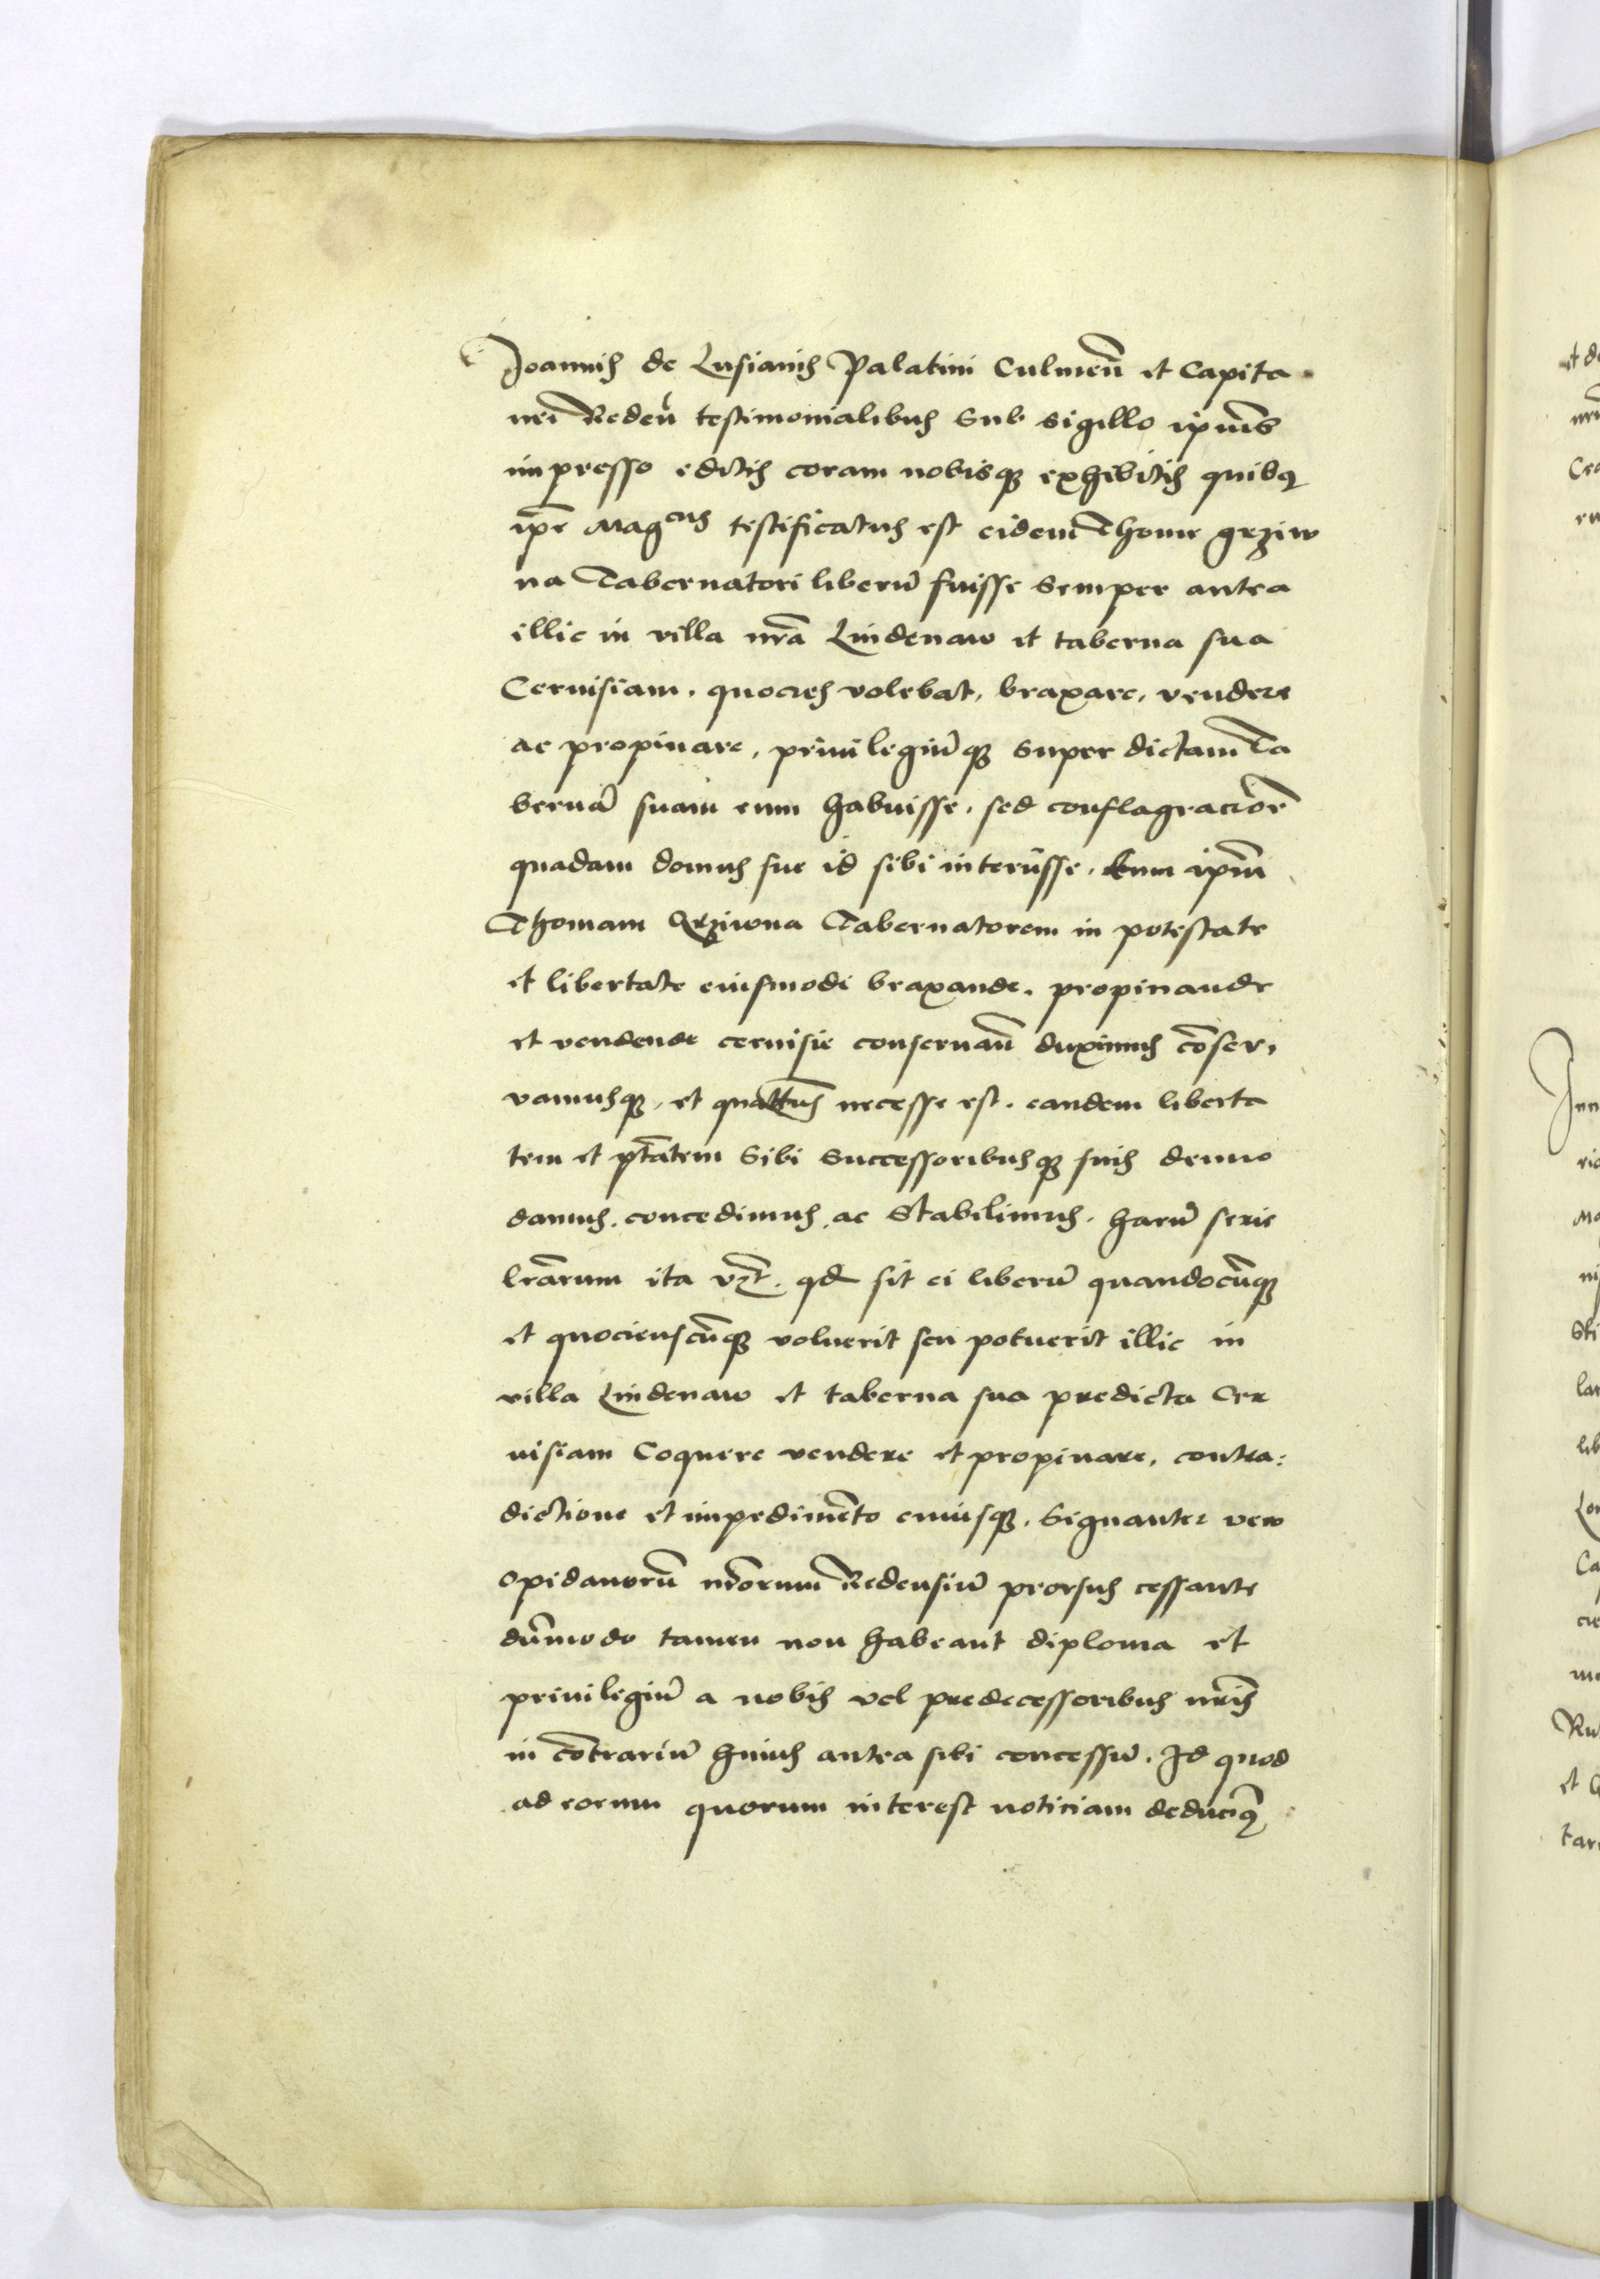 Joannis de Lusianis Palatini Culmeñ et Capita
nei Redeñ testimonialibus sub sigillo ipiuˢ
impresso editis coram nobisque exhibitis quibꝰ
ip̄e Mag^cus testificatus est eidem Thome grziw
na Tabernatori liberū fuisse semper antea
illic in villa nrā Lindenaw et taberna sua
Ceruisiam, quocies volebat, braxare, vendere
ac propinare, priuilegiūque super dictam Ta
bernā suam eum habuisse, sed conflagracione
quadam domus sue id sibi interiisse. Eum ip̄m
Thomam Grziwna Tabernatorem in potestate
et libertate eiusmodi braxande, propinande
et vendende ceruisie conseruañ duximus cōser,
vamusque, et quattus necesse est, eandem liberta
tem et ptātem sibi successoribusque suis denuo
damus, concedimus, ac stabilimus, harū serie
lrārum ita vzt, qd sit ei liberū quandocūque
et quocienscūque voluerit seu potuerit illic in
villa Lindenaw et taberna sua predicta Cer
uisiam Coquere vendere et propinare, contra:
dictione et impedimēto cuiusque, signanter vero
opidanorū nr̄orum Redensiū prorsus cessante
dūmodo tamen non habeant diploma et
priuilegiū a nobis vel predecessoribus nr̄is
in cōtrariū huius antea sibi concessū. Id quod
ad eorum quorum interest noticiam deducimꝰ